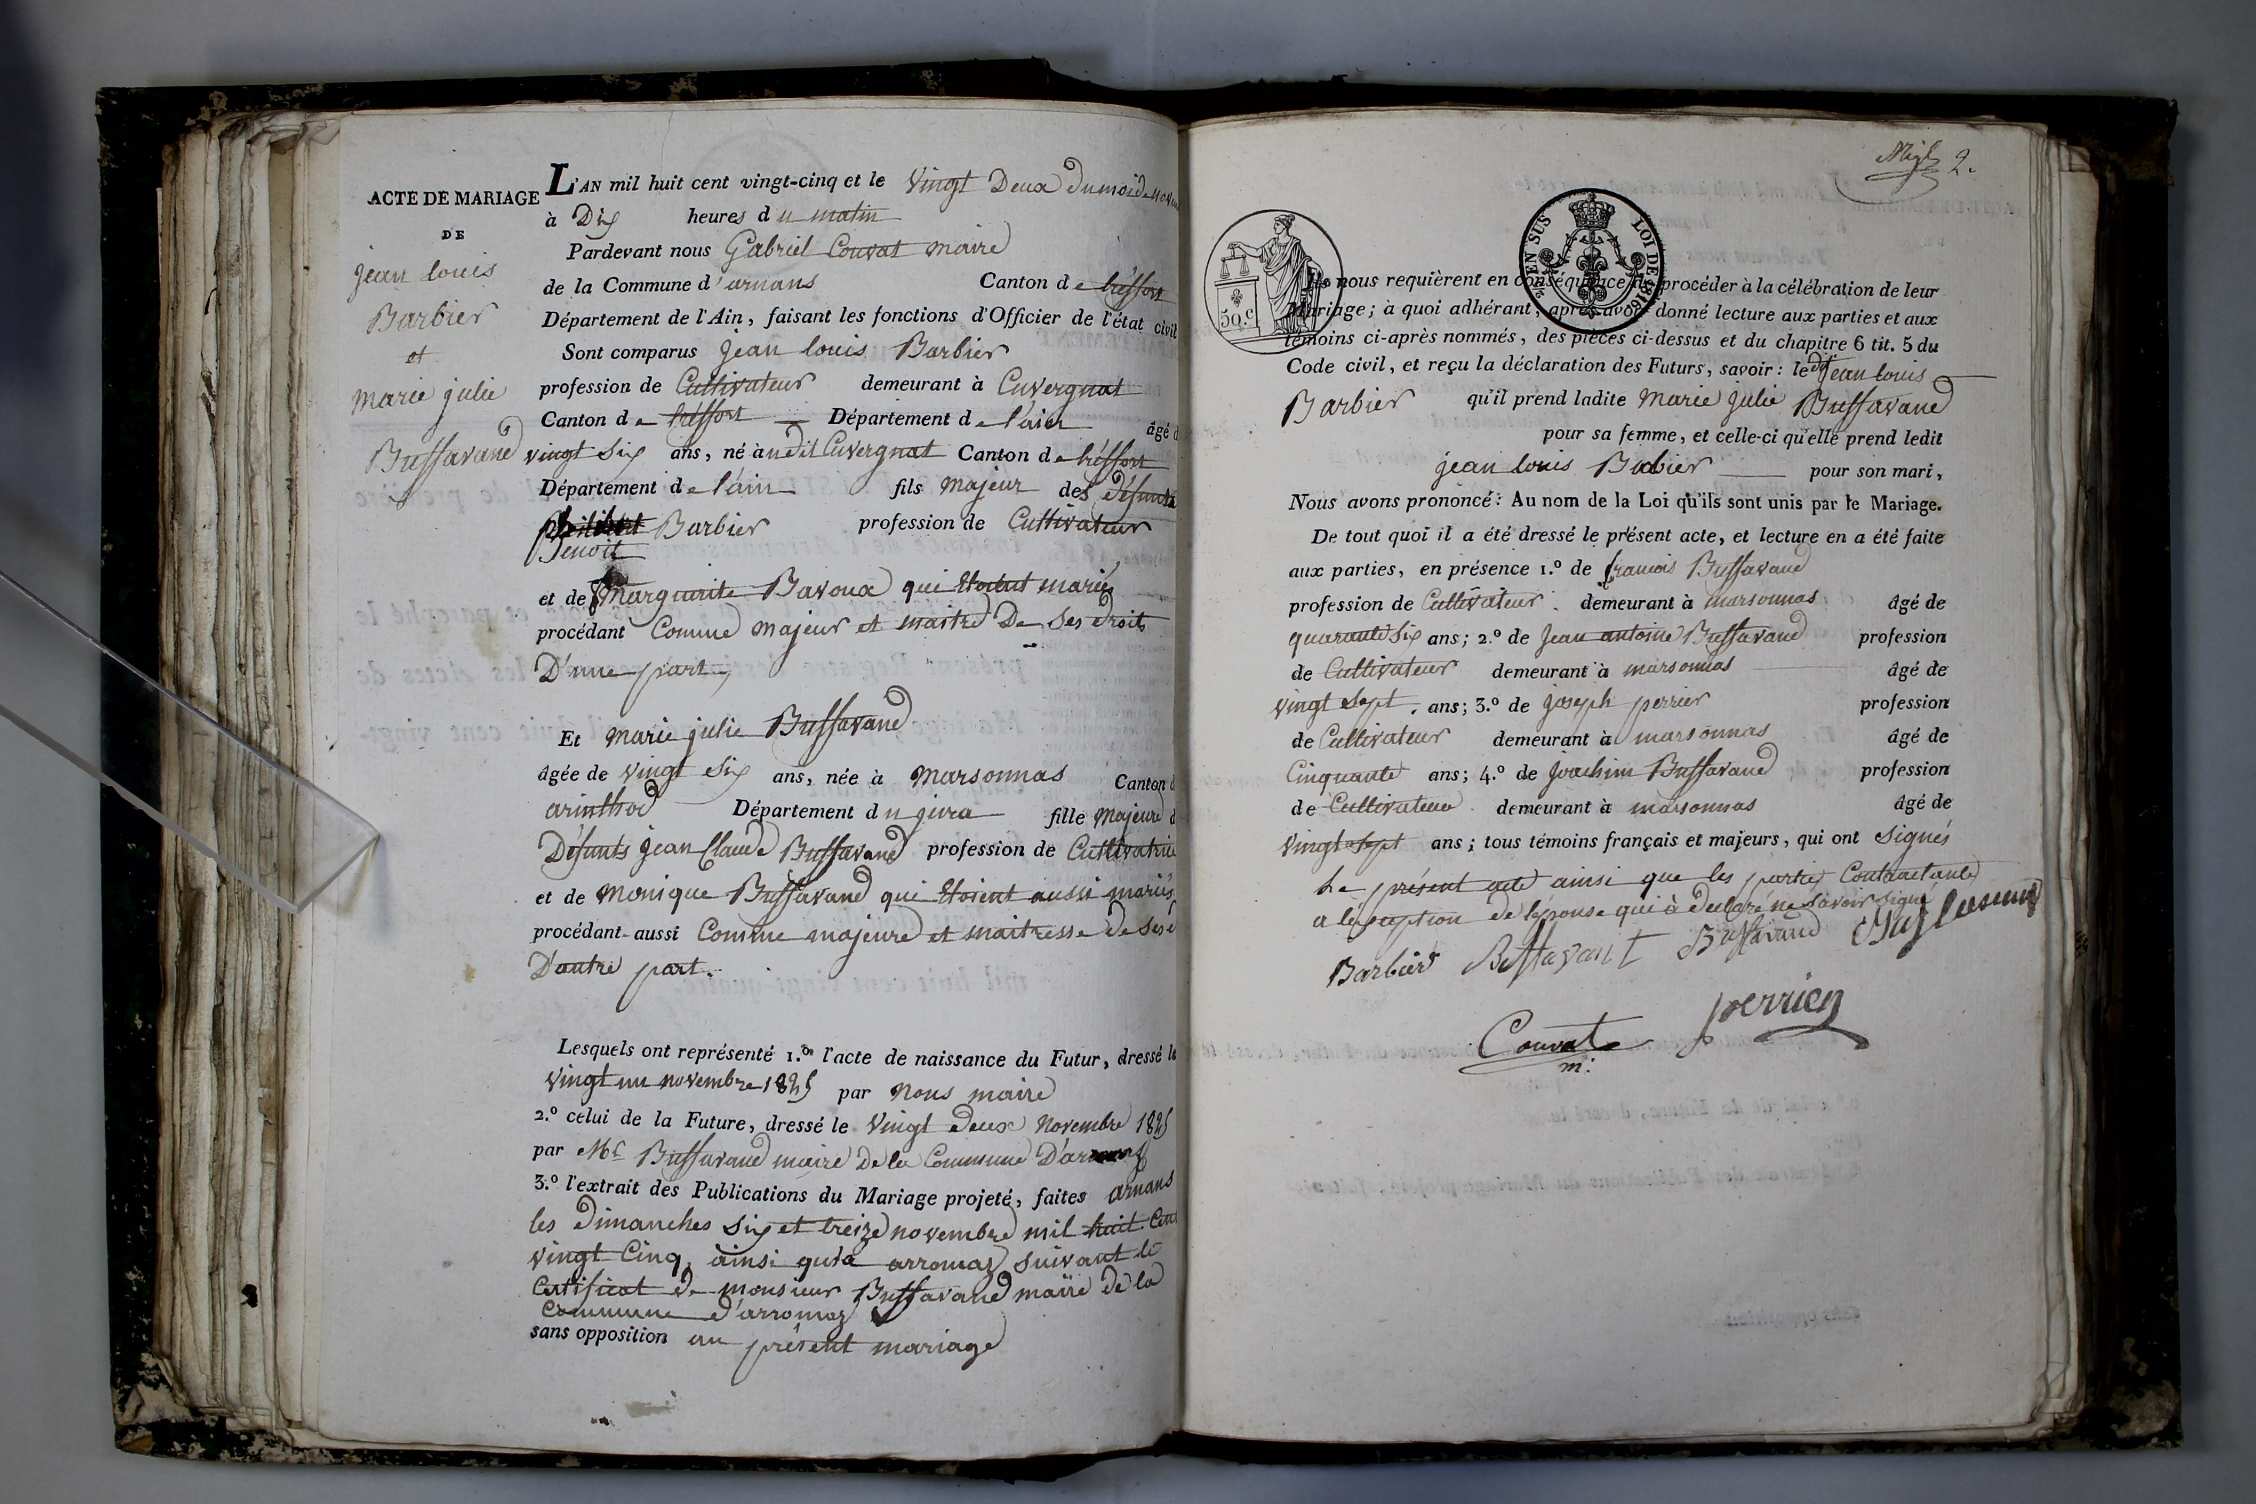 ACTE DE MARIAGE
DE
jean louis
Barbier
et
marie julie
Buffavand
L'AN mil huit cent vingt-cinq et le vingt Deux du mois de nov
à Dix heures du matin
Pardevant nous Gabriel Couvat maire
de la Commune d'arnans Canton de tréffort
Département de l'Ain, faisant les fonctions d'Officier de l'état civil
Sont comparus jean louis Barbier
profession de Cultivateur demeurant à Cuvergnat
Canton de tréffort Département de l'ain âgé d
vingt six ans, né audit Cuvergnat Canton de tréffort
Département de l'ain fils majeur des défunts
Barbier profession de Cultivateur
Benoit
et de Marguerite Bavoux qui étoient mariés
procédant Comme majeur et maitre De ses droits
D'une part,
Et marie julie Buffavand
âgée de vingt six ans, née à marsonnas Canton d
arinthod Département du jura fille majeure d
Défunts jean Claude Buffavand profession de Cultivatrice
et de monique Buffavand qui étoient aussi mariés
procédant aussi Comme majeure et maitresse de ses
D'autre part.
Lesquels ont représenté 1.º l'acte de naissance du Futur, dressé le
vingt un novembre 1825 par nous maire
2.º celui de la Future, dressé le vingt deux novembre 1825
par Mr Buffavand maire de la Commune
3.º l'extrait des Publications du Mariage projeté, faites arnans
les dimanches six et treize novembre mil huit Cent
vingt Cinq, ainsi qu'à arromaz suivant le
Certificat de monsieur Buffavand maire de la
Commune d'arromaz
sans opposition au présent mariage
2.
50.c
EN SUS LOI DE 1816
Ils nous requièrent en conséquence de procéder à la célébration de leur
Mariage; à quoi adhérant, après avoir donné lecture aux parties et aux
témoins ci-après nommés, des pièces ci-dessus et du chapitre 6 tit. 5 du
Code civil, et reçu la déclaration des Futurs, savoir: ledit jean louis
Barbier qu'il prend ladite marie julie Buffavand
pour sa femme, et celle-ci qu'elle prend ledit
jean louis Barbier pour son mari,
Nous avons prononcé: Au nom de la Loi qu'ils sont unis par le Mariage.
De tout quoi il a été dressé le présent acte, et lecture en a été faite
aux parties, en présence 1.º de francois Buffavand
profession de Cultivateur demeurant à marsonnas âgé de
quarante six ans; 2.º de jean antoine Buffavand profession
de Cultivateur demeurant à marsonnas âgé de
vingt sept ans; 3.º de joseph perrier profession
de Cultivateur demeurant à marsonnas âgé de
Cinquante ans; 4.º de joachim Buffavand profession
de Cultivateur demeurant à marsonnas âgé de
vingt sept ans; tous témoins français et majeurs, qui ont signés
le présent acte ainsi que les parties Contractantes
a l'éxeption de l'épouse qui à declaré ne savoir signé
Barbier Buffavant Buffavand
Couvat perrier
m.